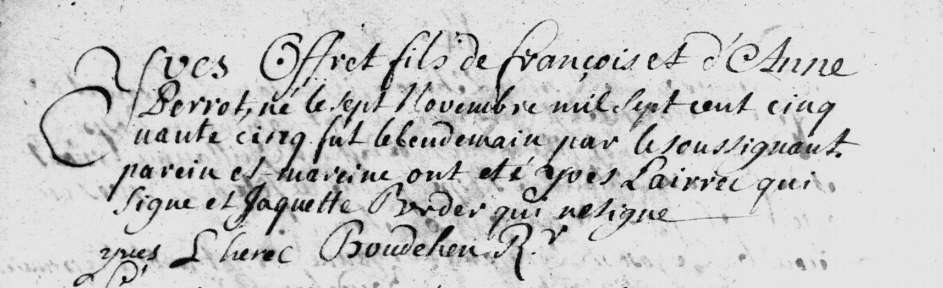 Yves Offret fils de françois et d'Anne
Perrot, né le sept Novembre mil sept cent cinq
uante cinq fut le lendemain par le soussignant.
parein et mareine ont eté yves Lairrec qui
signe et Jaquette Border qui ne signe
yves Lheree Boudehen Rr.